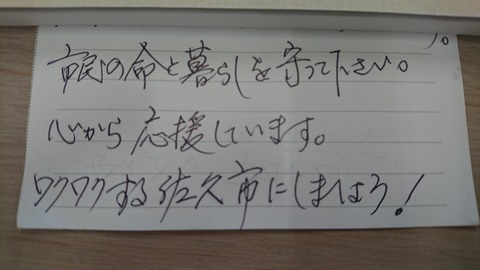 市民の命と暮らしを守って下さい。
心から応援しています。
ワクワクする佐久市にしましょう!